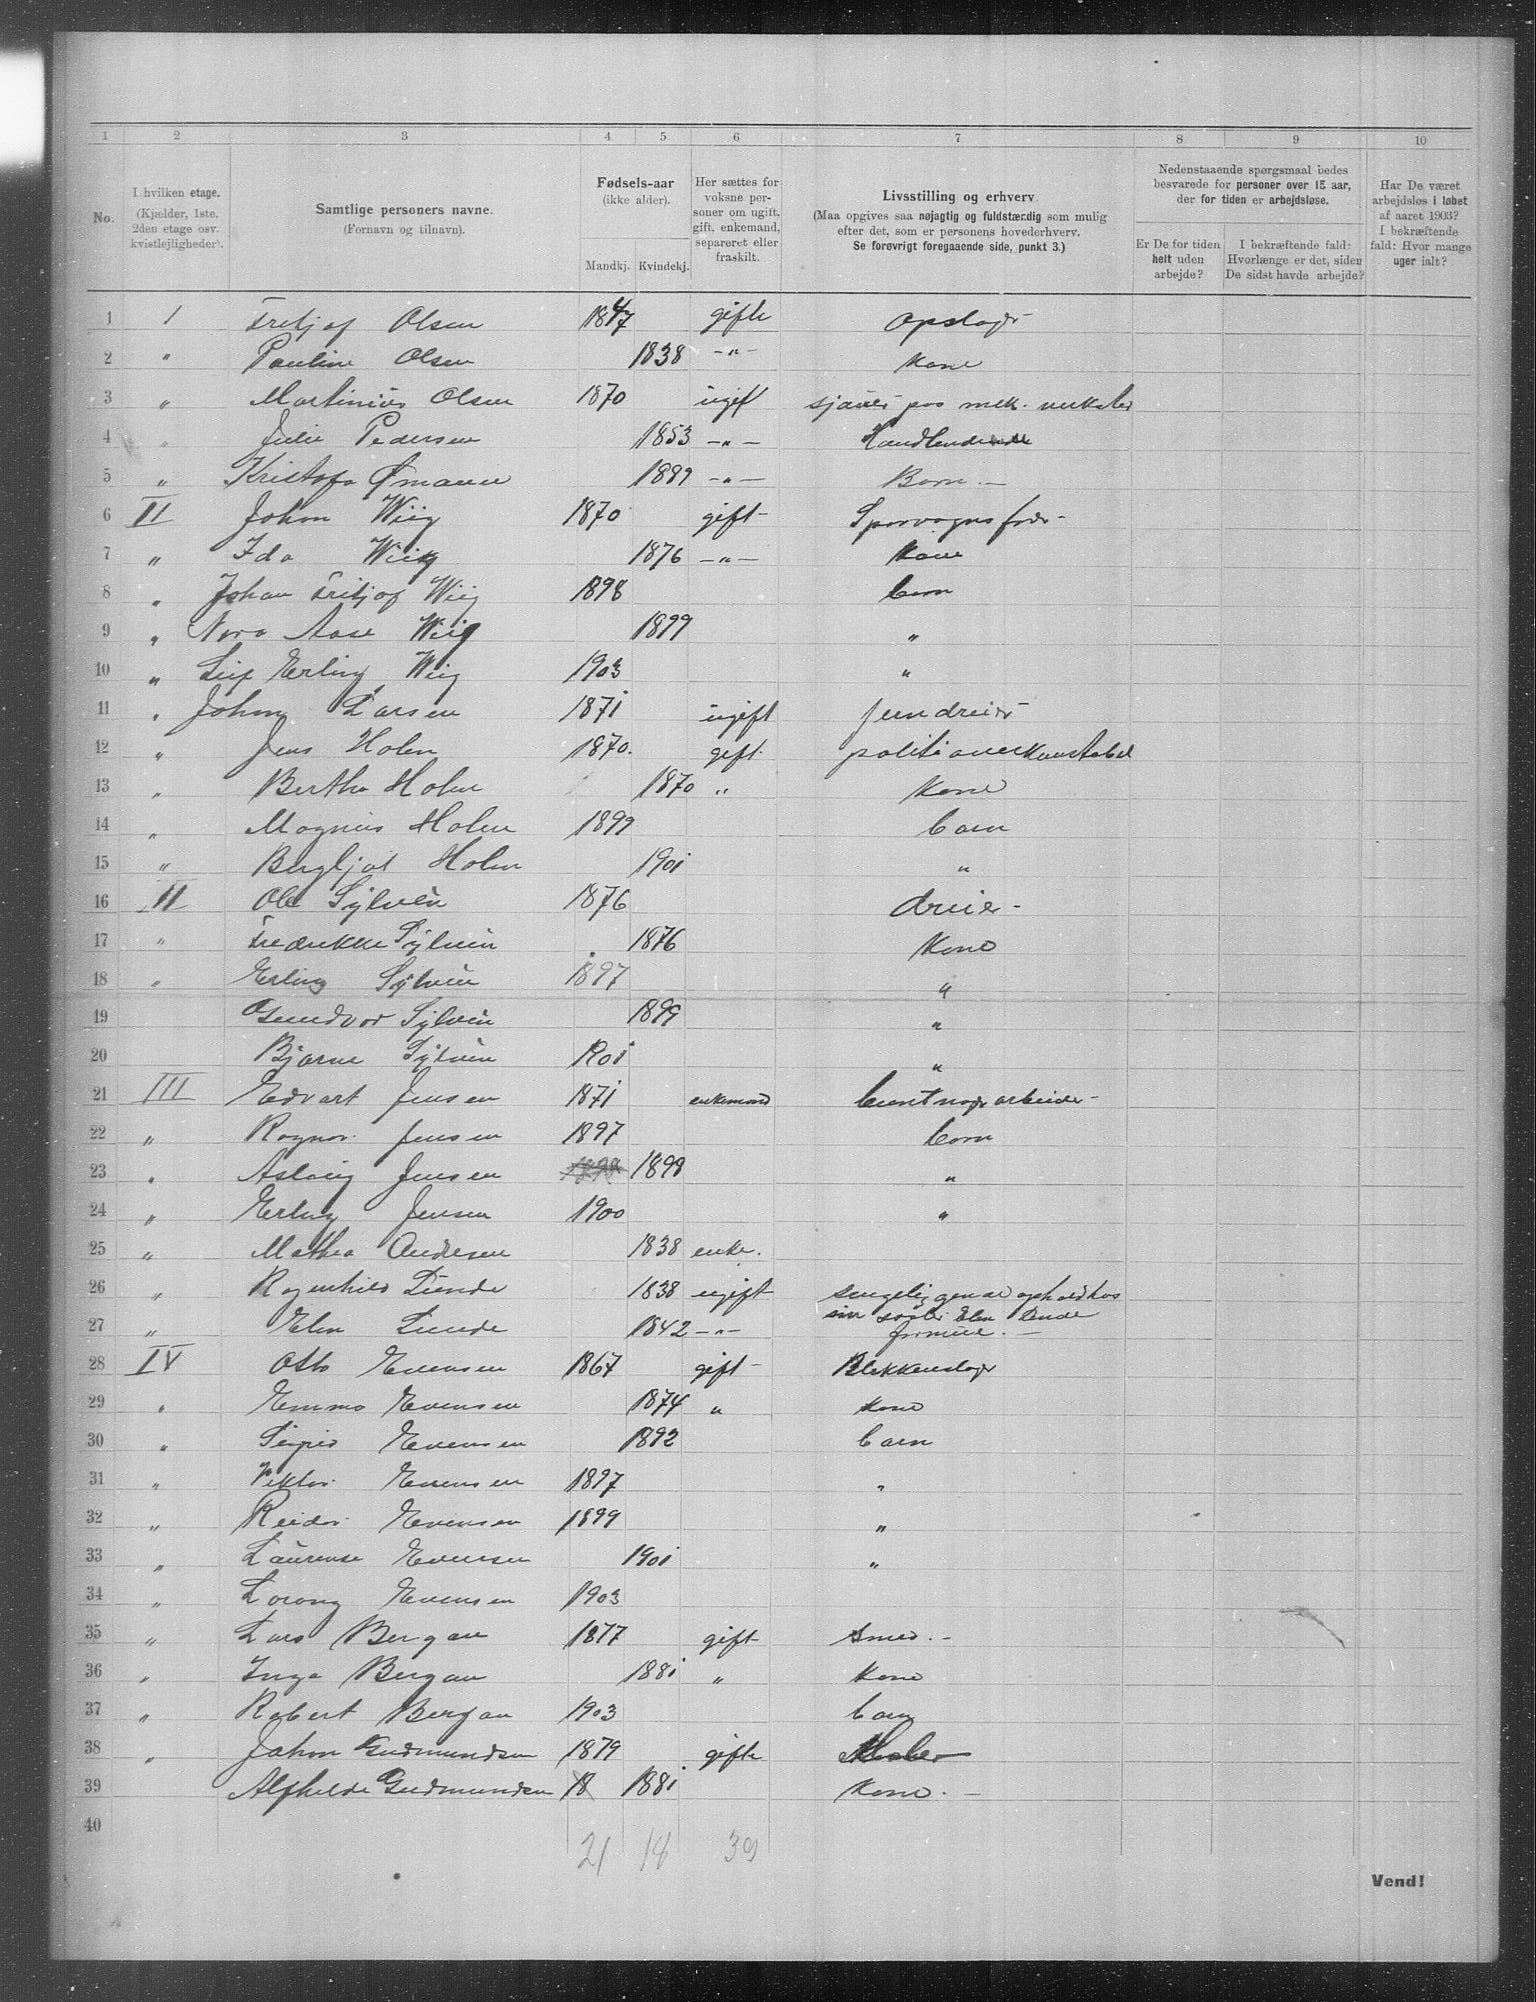 1 2 3 4 5 6 7 8 9 10
No.
I hvilken etage.
(Kjælder, 1ste, 2den etage osv. kvistlejligheder).
Samtlige personers navne.
(Fornavn og tilnavn).
Fødsels-aar
(ikke alder).
Mandkj. Kvindekj.
Her sættes for voksne personer om ugift, gift, enkemand, separeret eller fraskilt.
Livsstilling og erhverv.
(Maa opgives saa nøjagtig og fuldstændig som mulig
efter det, som er personens hovederhverv.
Se forøvrigt foregaaende side, punkt 3.)
Nedenstaaende spørgsmaal bedes besvarede for personer over 15 aar, der for tiden er arbejdsløse.
Er De for tiden helt uden arbejde?
I bekræftende fald: Hvorlænge er det, siden De sidst havde arbejde?
Har De været arbejdsløs i løbet af aaret 1903? I bekræftende fald: Hvor mange uger ialt?
1 I Fritjof Olsen 1847 gift
2 " Pauline Olsen 1838 -"- Kone
3 " Martinius Olsen 1870 ugift sjauer paa mek. verksted
4 " Julie Pedersen 1853 -"- Handlende
5 " 1889 -"- Barn
6 II Johan Wiig 1870 gift Sporvognsfører
7 " Ida Wiig 1876 -"- Kone
8 " Johan Fritjof Wiig 1898 barn
9 " Nora Aase Wiig 1899 "
10 " Leif Erling Wiig 1903 "
11 " Johan Larsen 1871 ugift jerndreier
12 " Jens Holen 1870. gift politioverkonstabel
13 " Bertha Holen 1870 " Kone
14 " Magnus Holen 1899 barn
15 " Bergljot Holen 1901 "
16 II Ole Sylvén 1876 dreier -
17 " Fredrikke Sylvén 1876 Kone
18 " Erling Sylvén 1897 "
19 Gundvor Sylvén 1899 "
20 Bjarne Sylvén 1901 "
21 III Edvart Jensen 1871 enkemand
22 " Ragnar Jensen 1897 barn
23 " Aslaug Jensen 1898 "
24 " Erling Jensen 1900 "
25 " Mathea Andersen 1838 enke.
26 " Ragnhild Lunde 1838 ugift sengeliggende ophold hos
sin søster Elen Lunde
27 " Elen Lunde 1842 -"- formue. -
28 IV Otto Evensen 1867 gift Blikkenslager
29 " Emma Evensen 1874 " Kone
30 " Sigrid Evensen 1892 barn
31 " Viktor Evensen 1897 "
32 " Reidar Evensen 1899 "
33 " Laurense Evensen 1901 "
34 " Evensen 1903
35 " Lars Bergan 1877 gift smed. -
36 " Inga Bergan 1881 " Kone
37 " Robert Bergan 1903 barn
38 " Johan Gudmundsen 1879 gift
39 Alfhilde Gudmundsen 18 1881 Kone. -
40
21 18 39
Vend!